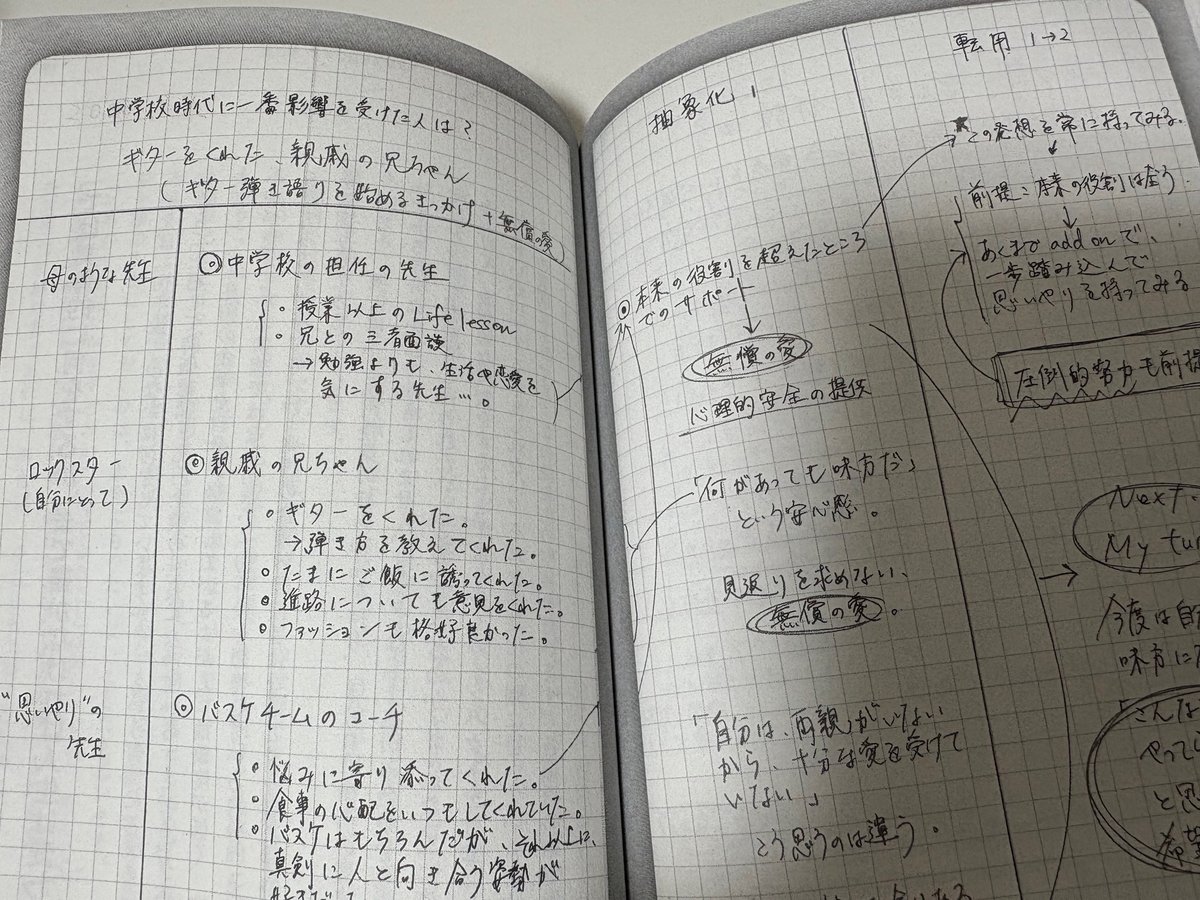 中学校時代に一番影響を受けた人は?
ギターをくれた、親戚の兄ちゃん
(ギター弾き語りを始めるきっかけ + 無償の愛)
母のような先生
◎中学校の担任の先生
・授業以上のLife lesson
・兄との三者面談
→勉強よりも、生活や恋愛を
気にする先生…。
ロックスター
(自分にとって)
◎親戚の兄ちゃん
・ギターをくれた。
→弾き方を教えてくれた。
・たまにご飯に誘ってくれた。
・進路についても意見をくれた。
・ファッションも格好良かった。
"思いやり"の
先生
◎バスケチームのコーチ
・悩みに寄り添ってくれた。
・食事の心配をいつもしてくれていた。
・バスケはもちろんだが、それ以上に、
真剣に人と向き合う姿勢が
抽象化 1
◎本来の役割を超えたところ
でのサポート
無償の愛
心理的安全の提供
「何があっても味方だ」
という安心感。
見返りを求めない、
無償の愛。
「自分は、両親がいない
から、十分な愛を受けて
いない」
こう思うのは違う。
転用 1→2
★この発想を常に持ってみる。
前提:本来の役割は全う
↓
あくまで add onで、
一歩踏み込んで
思いやりを持ってみる
圧倒的努力も前提
Next
My turn
今度は自
味方に
「こんな
やって
と思
希望